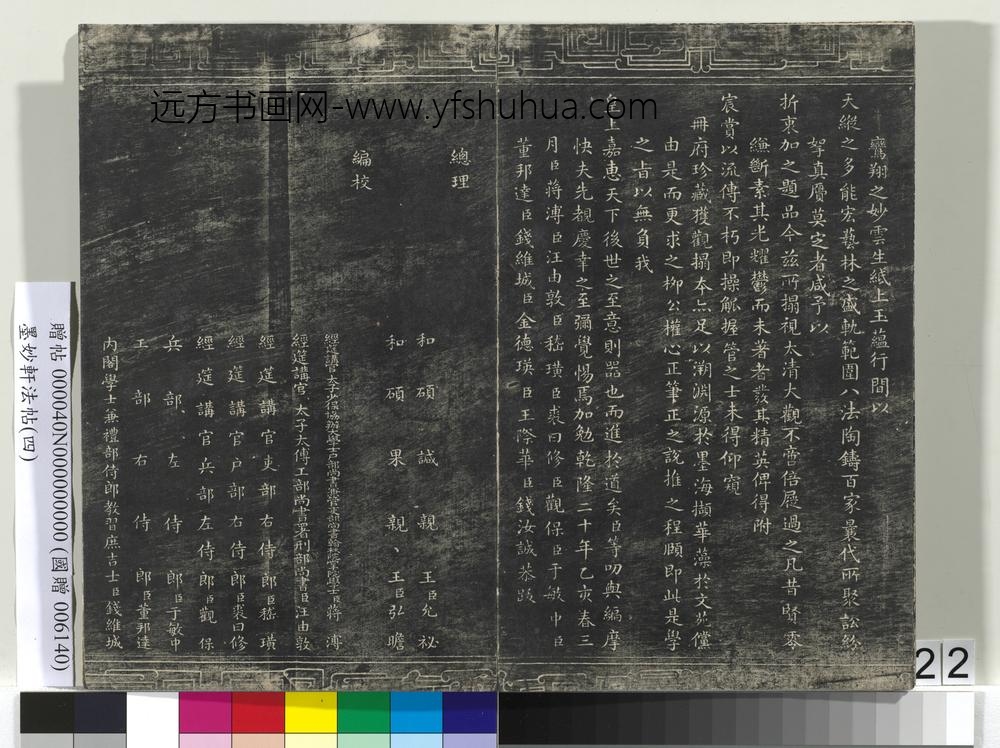 远方书画网-www.yfshuhua.com
鸞翔之妙雲生紙上玉蘊行間以
天縱之多能宏藝林之盛軌範圍八法陶鑄百家曩代所聚訟紛
挐真贋莫定者咸予以
折衷加之題品今茲所搨視太清大觀不啻倍屣過之凡昔賢零
縑斷素其光耀鬱而未著者發其精英俾得附
宸賞以流傳不朽即操觚握管之士未得仰窺
冊府珍藏獲觀搨本亦足以溯淵源於墨海擷華藻於文苑儻
由是而更求之柳公權心正筆正之說推之程頤即此是學
之旨以無負我
皇上嘉惠天下後世之至意則器也而進於道矣臣等叨與編摩
快夫先覩慶幸之至彌覺惕焉加勉乾隆二十年乙亥春三
月臣蔣溥臣汪由敦臣嵇璜臣裘曰修臣觀保臣于敏中臣
董邦達臣錢維城臣金德瑛臣王際華臣錢汝誠恭跋
總理
和碩諴親王臣允祕
和碩果親王臣弘瞻
編校
經筵講官太子少保協辦大學士戶部尚書兼管吏部尚書翰林院掌院學士臣蔣溥
經筵講官太子太傅工部尚書署刑部尚書臣汪由敦
經筵講官吏部右侍郎臣嵇璜
經筵講官戶部右侍郎臣裘曰修
經筵講官兵部左侍郎臣觀保
兵部左侍郎臣于敏中
工部右侍郎臣董邦達
內閣學士兼禮部侍郎教習庶吉士臣錢維城
贈帖 000040N000000000 (國贈 006140)
墨妙軒法帖(四)
22